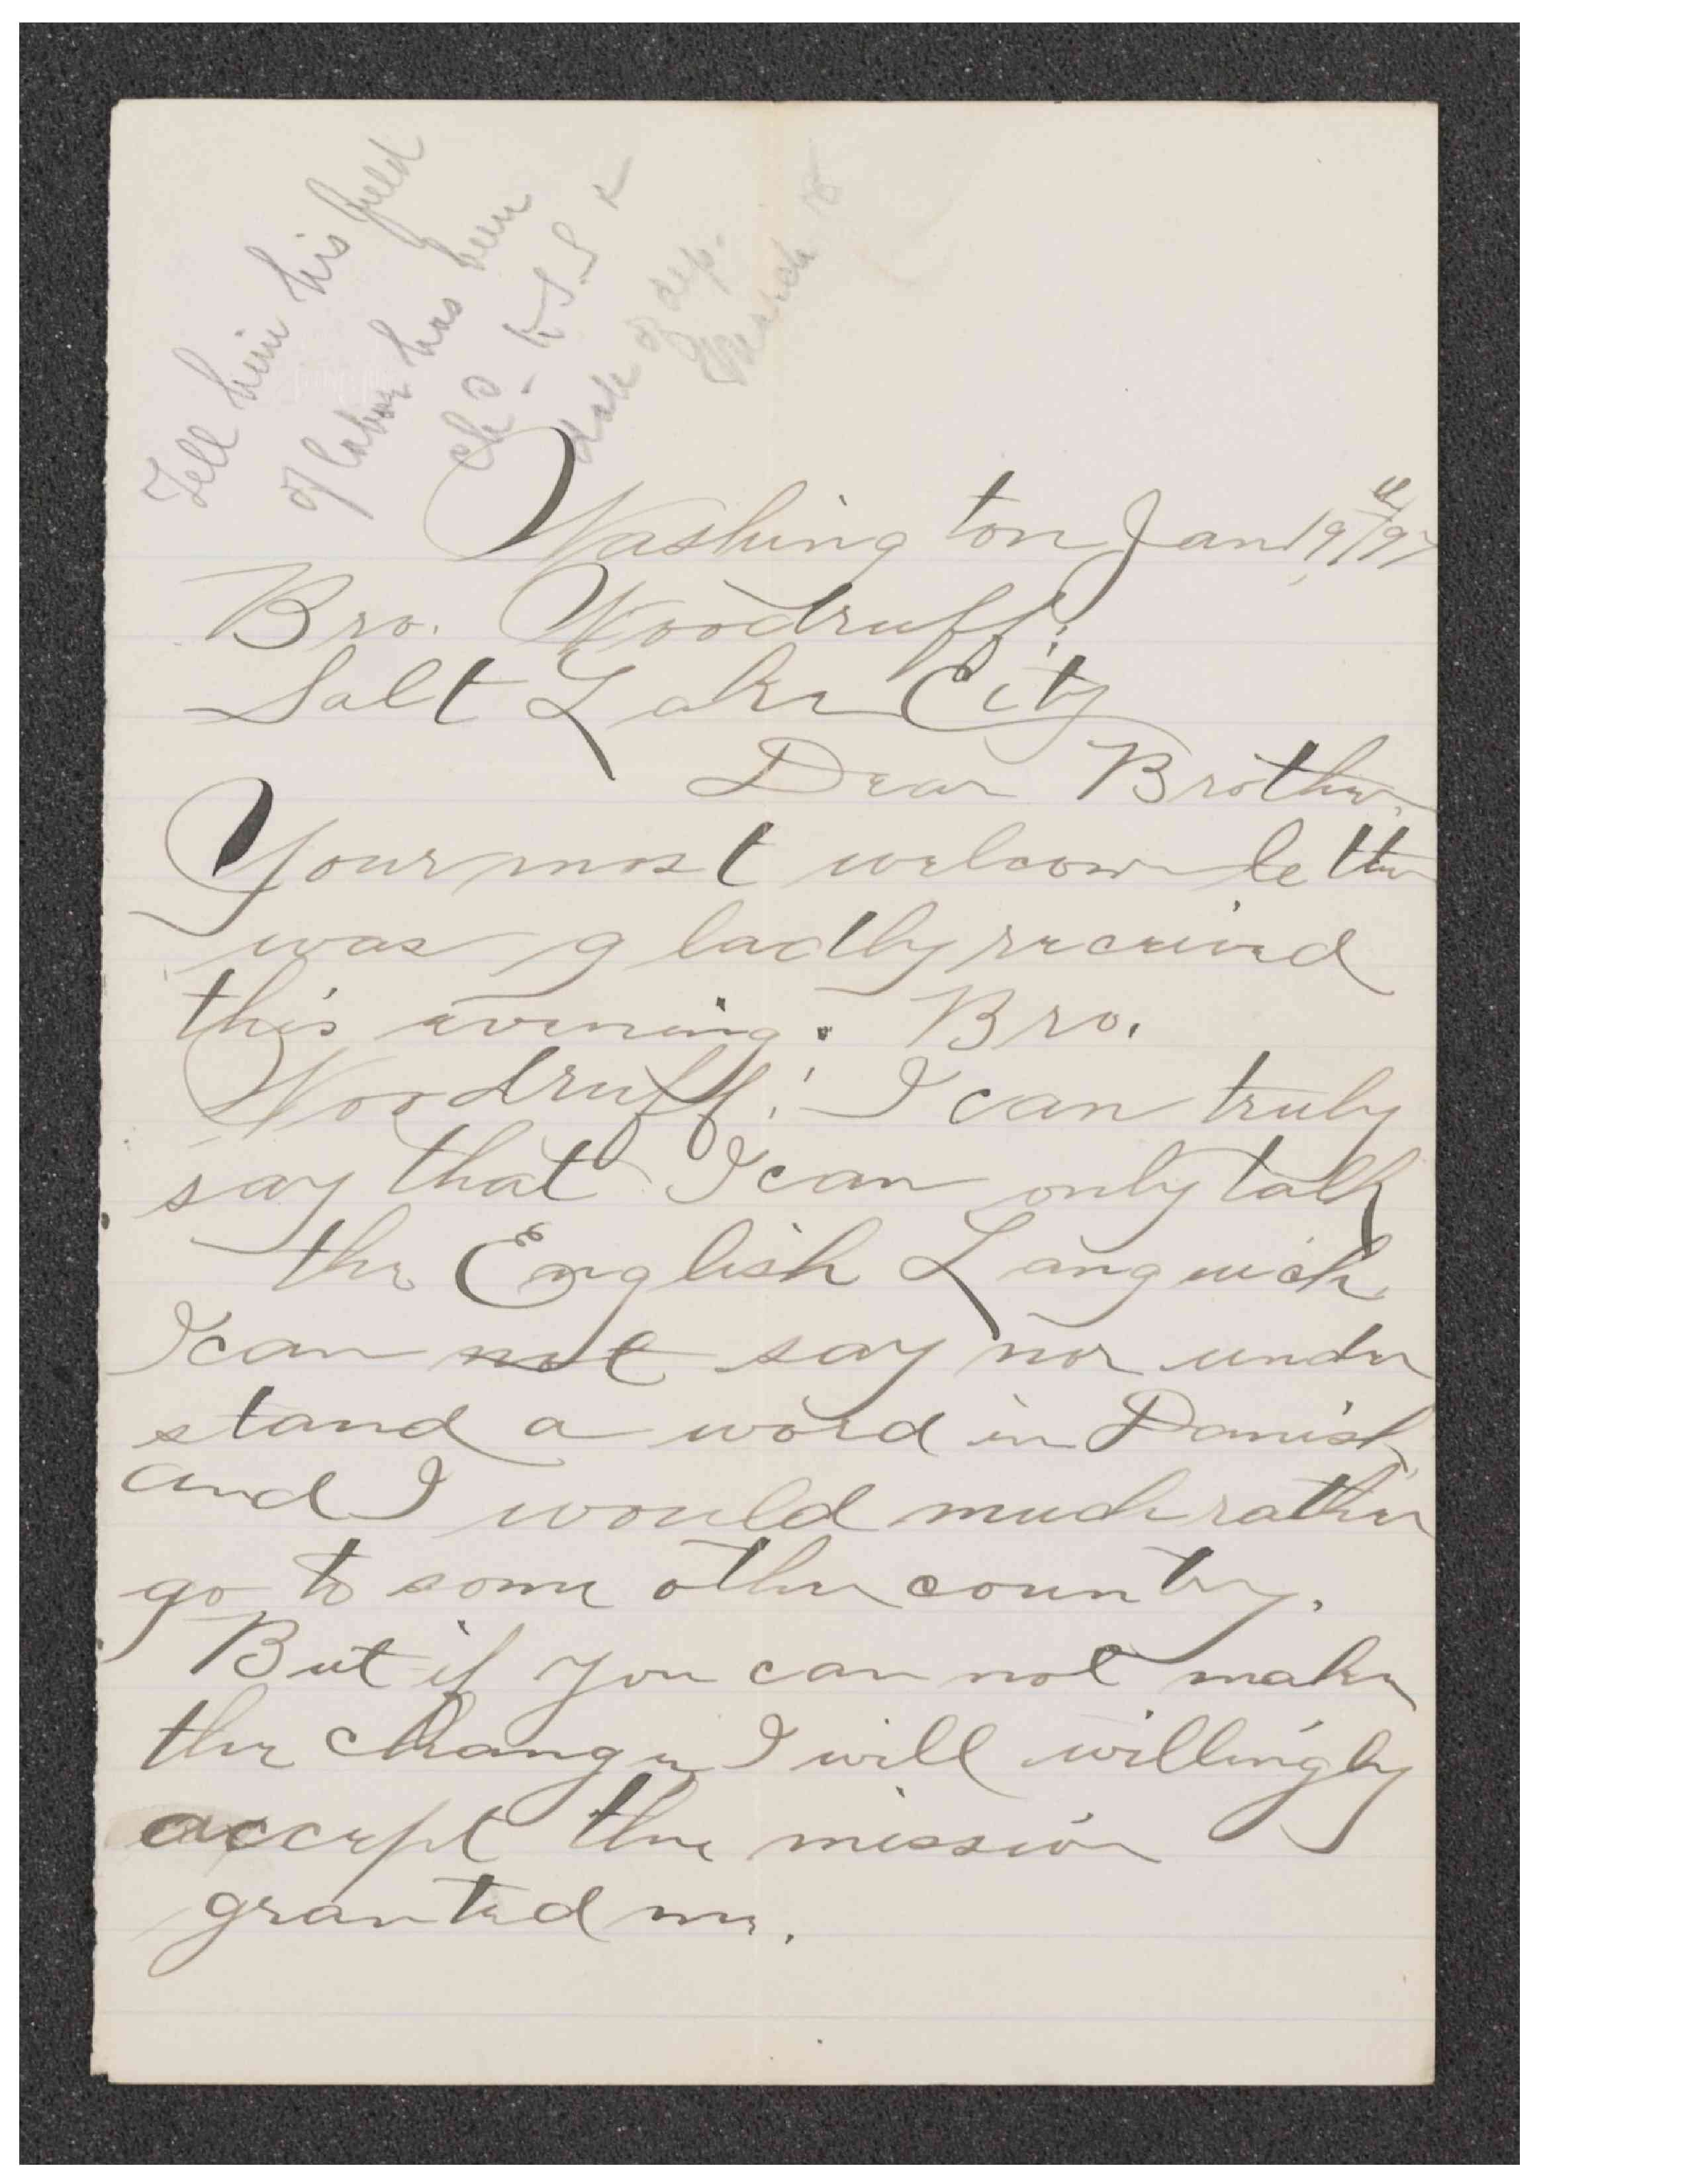 Tell him his field
of labor has been
ch'd - to S. S
date of dep.
March
Washington Jan 19th/97
Bro. Woodruff;
Salt Lake City
Dear Brother.
Your most welcom letter
was gladly received
this evening. Bro.
Woodruff; I can truly
say that I can only talk
the English Languich
I can not say nor under
stand a word in Danish,
and I would much rather
go to some other country.
But if you can not make
the change I will willingly
accept the mission
granted me.